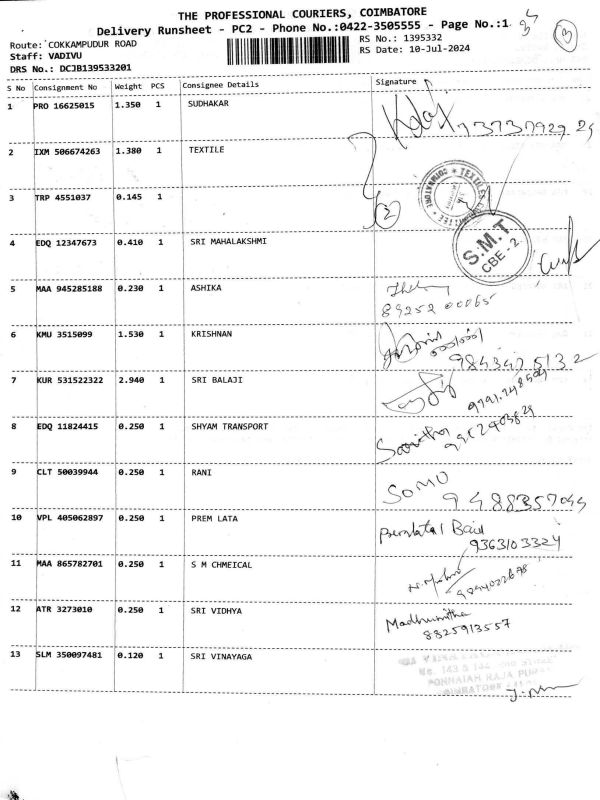 THE PROFESSIONAL COURIERS, COIMBATORE
Delivery Runsheet - PC2 - Phone No.:0422-3505555 - Page No.:1
Route: COKKAMPUDUR ROAD
RS No.: 1395332
Staff: VADIVU
RS Date: 10-Jul-2024
DRS No.: DCJB139533201
3
S No Consignment No Weight PCS Consignee Details Signature
1 PRO 16625015 1.350 1 SUDHAKAR
2 IXM 506674263 1.380 1 TEXTILE
3 TRP 4551037 0.145 1
2
4 EDQ 12347673 0.410 1 SRI MAHALAKSHMI
S.M.T
CBE - 2
5 MAA 945285188 0.230 1 ASHIKA
89252 00065
6 KMU 3515099 1.530 1 KRISHNAN
9843475132
7 KUR 531522322 2.940 1 SRI BALAJI
8 EDQ 11824415 0.250 1 SHYAM TRANSPORT
9 CLT 50039944 0.250 1 RANI
SOMU
10 VPL 405062897 0.250 1 PREM LATA
9363103324
11 MAA 865782701 0.250 1 S M CHMEICAL
12 ATR 3273010 0.250 1 SRI VIDHYA
Madhumitha
8825913557
13 SLM 350097481 0.120 1 SRI VINAYAGA